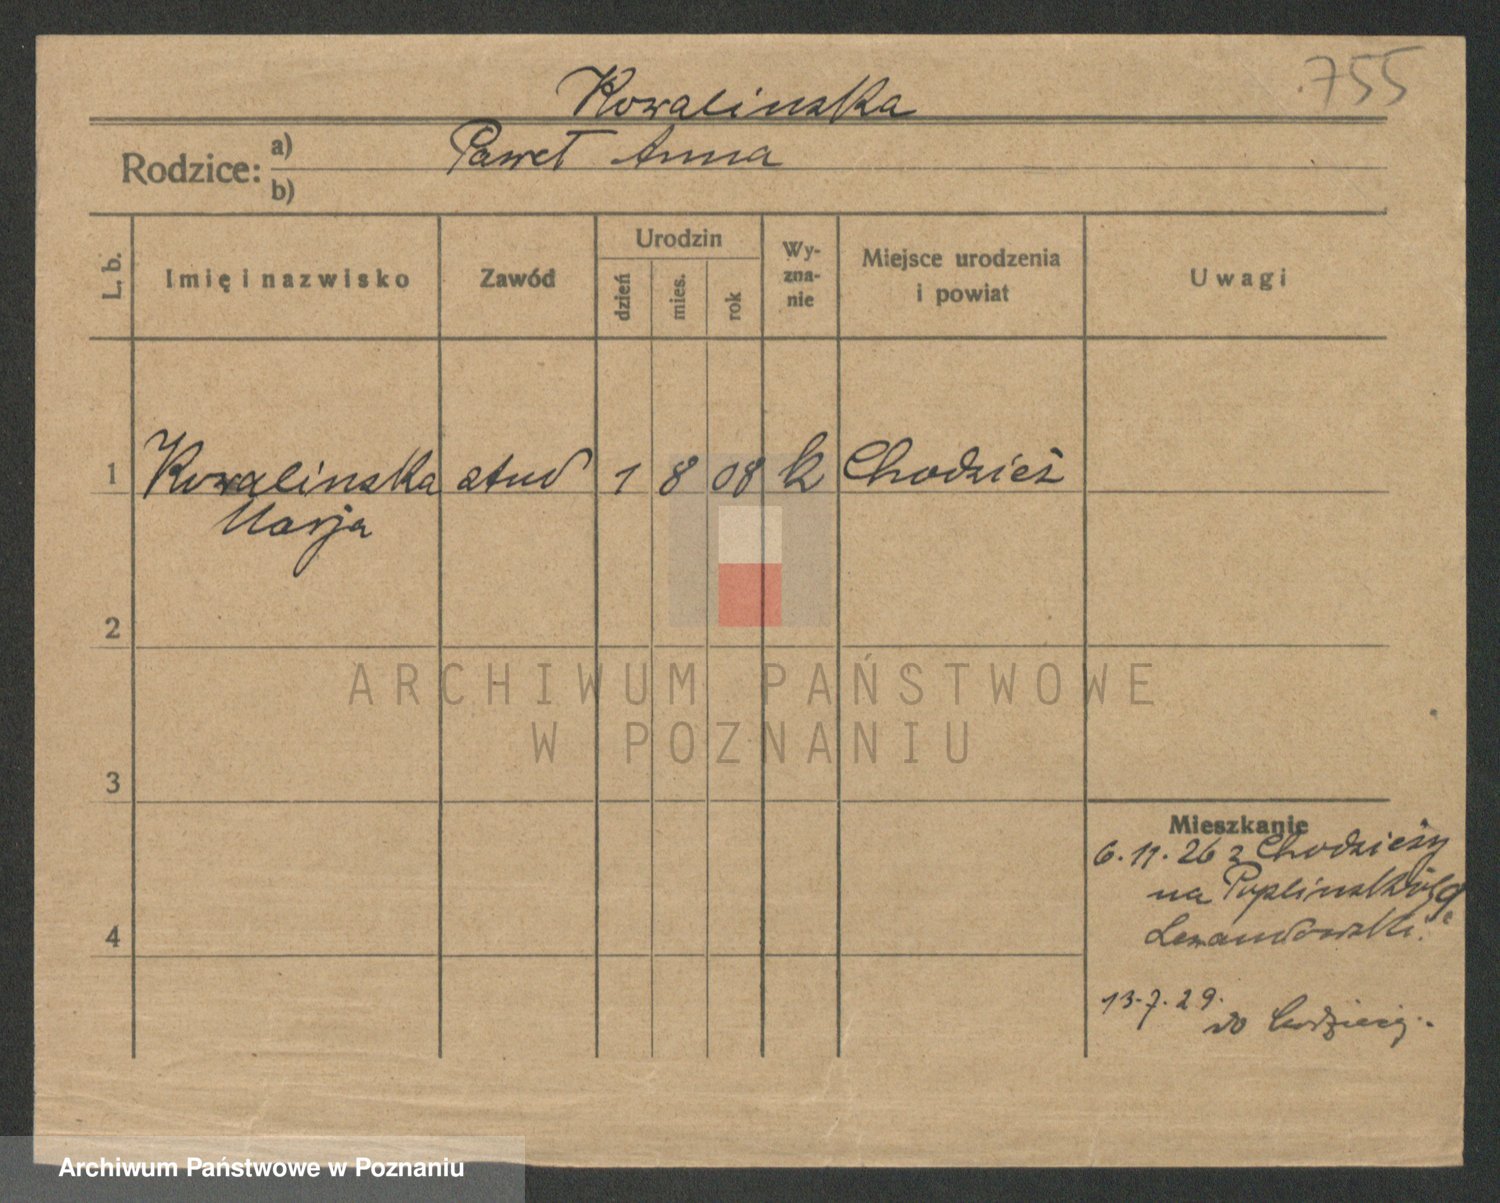 755
Kowalinska
Rodzice: a) Paweł Anna
b)
L. b.
Imię i nazwisko
Zawód
Urodzin
dzień
mies.
rok
Wy-
zna-
nie
Miejsce urodzenia
i powiat
Uwagi
1 Kowalinska stud 1 8 08 k Chodzież
Marja
2
3
4
Mieszkanie
6. 11. 26 z Chodzieży
na
Lewandowski
13. 7. 29.
do
ARCHIWUM PAŃSTWOWE
W POZNANIU
Archiwum Państwowe w Poznaniu